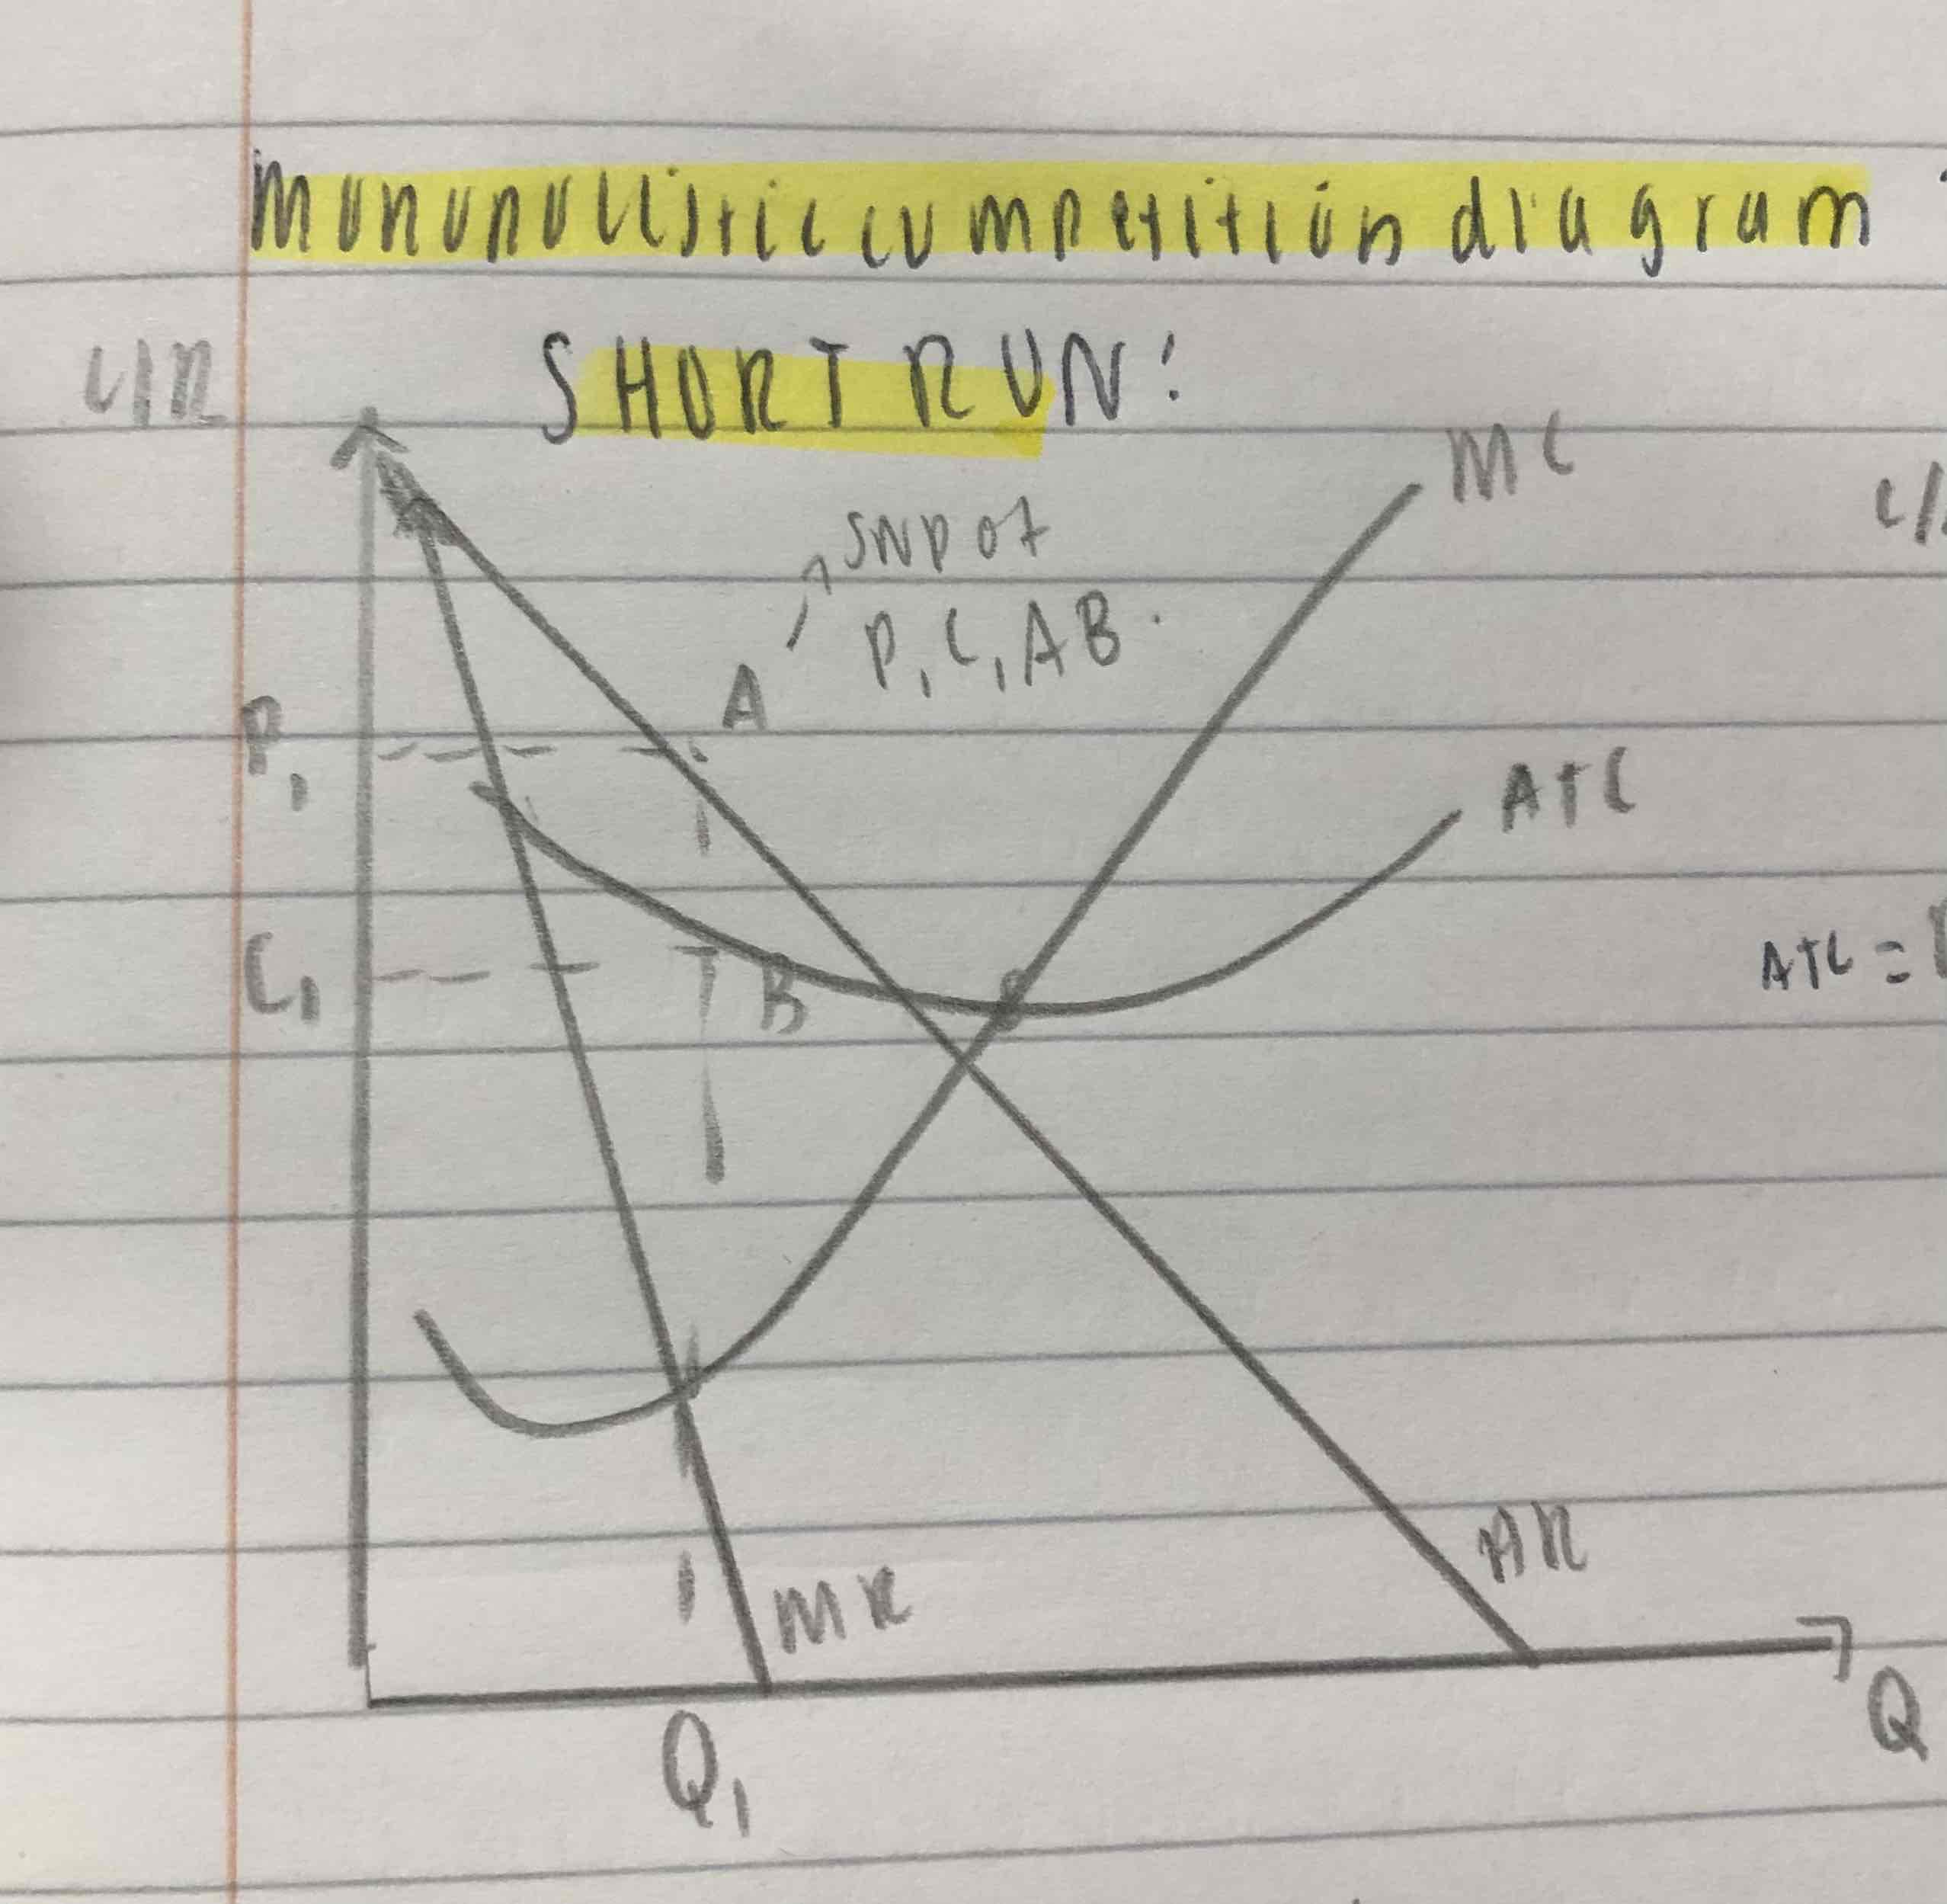 Monopolistic competition diagram
SHORT RUN:
C/R
MC
SNP of
P₁C₁AB.
A
P₁
ATC
C₁
B
ATC =
AR
MR
Q₁
Q